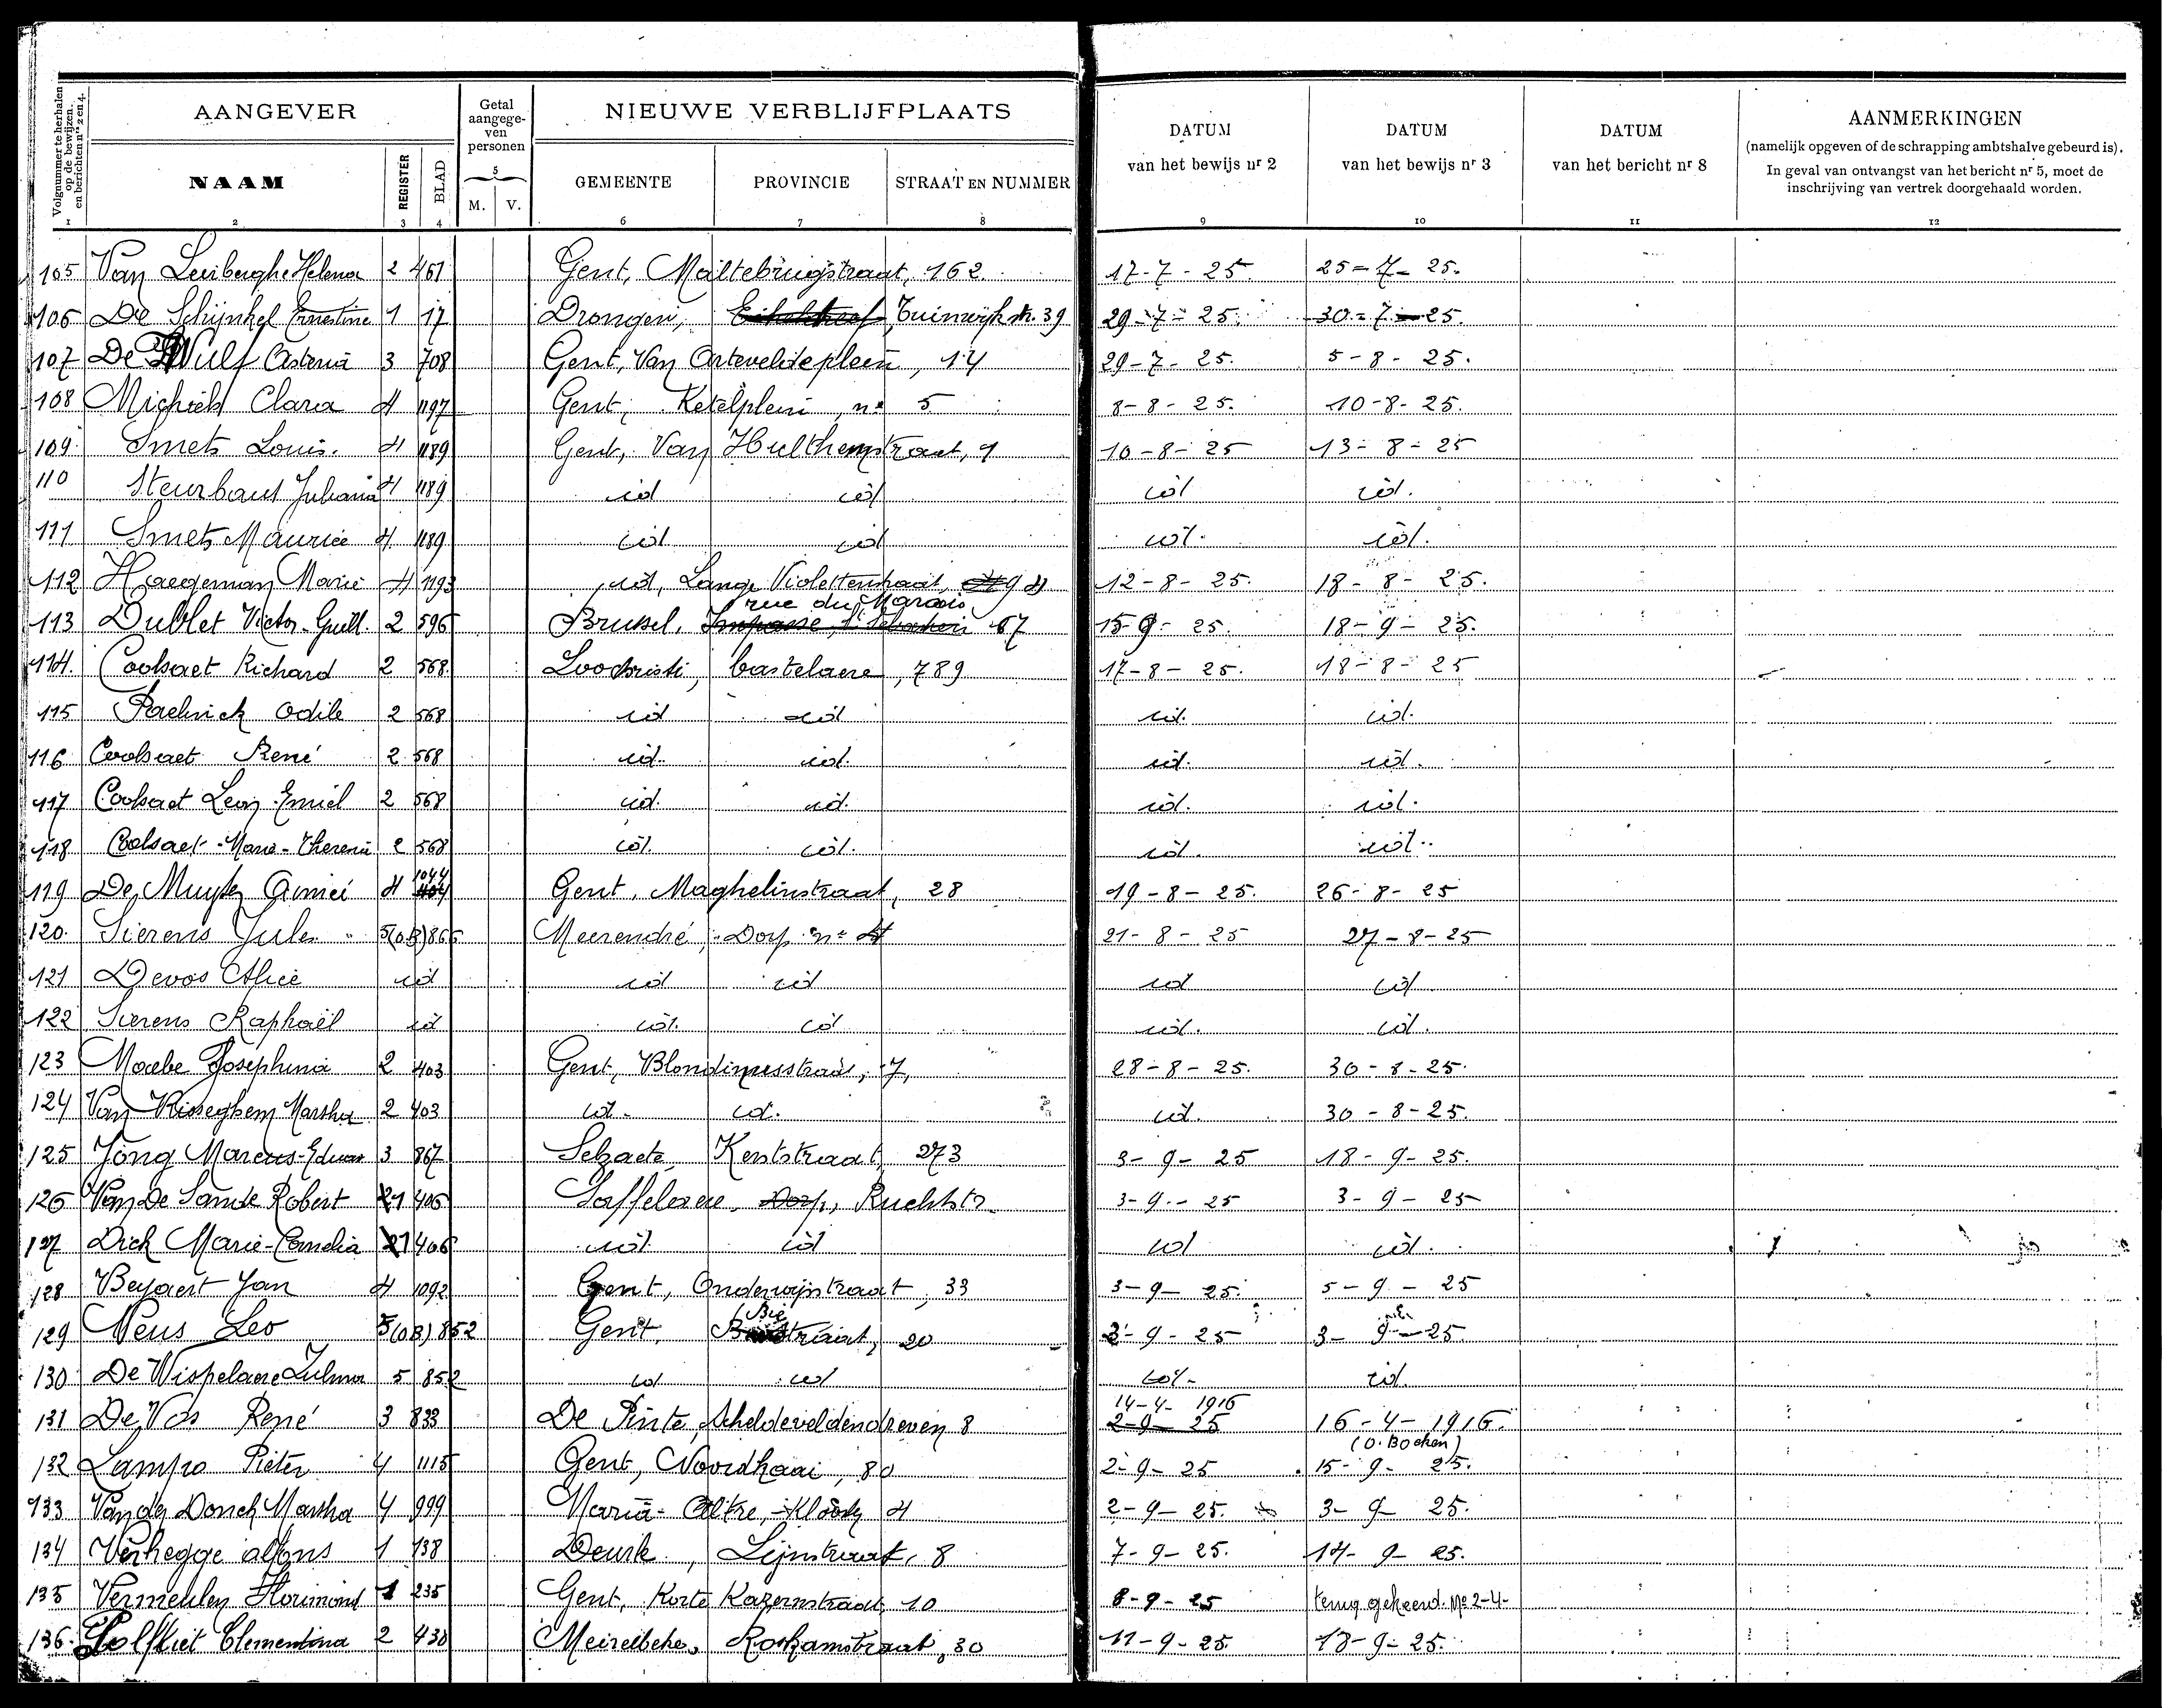 Volgnummer te herhalen op de bewijzen en berichten nrs 2 en 4.
AANGEVER
Getal aangegeven personen
NIEUWE VERBLIJFPLAATS
DATUM van het bewijs nr 2
DATUM van het bewijs nr 3
DATUM van het bericht nr 8
AANMERKINGEN
(namelijk opgeven of de schrapping ambtshalve gebeurd is).
In geval van ontvangst van het bericht nr 5, moet de
inschrijving van vertrek doorgehaald worden.
NAAM REGISTER BLAD M. V. GEMEENTE PROVINCIE STRAAT EN NUMMER
1 2 3 4 5 6 7 8 9 10 11 12
105 Van Leeberghe Helena 2 461 Gent, Maltebrugstraat, 162 17-7-25 25-7-25.
106 De Schijnkel Ernestine 1 17 Drongen, Tuinwijkstr. 39 29-7-25. 30-7-25.
107 De Wulf Asteria 3 708 Gent, Van Arteveldeplein, 14 29-7-25. 5-8-25.
108 Michiels Clara 4 1197 Gent, Ketelplein, no 5 8-8-25. 10-8-25.
109 Smets Louis. 4 1189 Gent, Van Hulthemstraat, 9 10-8-25 13-8-25
110 Steurbaut Juliana 4 1189 id id id id.
111 Smets Maurice 4 1189 id id id. id.
112 Haegeman Marie 4 1193 id, Lange Violettenstraat, 12-8-25. 18-8-25.
113 Dublet Victor-Guill. 2 596 Brussel, rue du Marais 67 15-9-25. 18-9-25.
114. Coolsaet Richard 2 568. Loochristi, bastelaere, 789 17-8-25. 18-8-25
115 Odile 2 568 id id id. id.
116 Coolsaet René 2 568 id. id. id. id.
117 Coolsaet Leon Emiel 2 568 id. id. id. id.
118 Coolsaet-Marie-Theresia 2 568 id. id. id. id.
119 De Muyter Aimé 4 1044 Gent, Maghelinstraat, 28 19-8-25. 26-8-25
120. Sierens Jules 5(OB)866 Meerendré, Dorp no 4 21-8-25 27-8-25
121 Devos Alice id id id id id
122 Sierens Raphaël id id. id id. id.
123 Maebe Josephina 2 403 Gent, 7, 28-8-25. 30-8-25.
124 Van Risseghem Martha 2 403 id. id. id. 30-8-25.
125 Jong Marcus-Eduar 3 867 Selzaete, Keststraat, 273 3-9-25 18-9-25.
126 Van De Sande Robert 1 406 Saffelaere, Dorp, 3-9-25 3-9-25
127 Dick Marie-Camelia 1 406 id. id id id.
128 Beyaert Jan 4 1092 Gent, Onderwijstraat, 33 3-9-25. 5-9-25
129 Neus Leo 5(OB)852 Gent, 20 3-9-25 3-9-25.
130 De Wispelaere Zulma 5 852 id id id. id.
131 De Vos René 3 833 De Pinte, Scheldeveldendreven 8 14-4-1916 2-9-25 16-4-1916.
(O. Boeken)
132 Lampo Pieter 4 1115 Gent, Noordkaai, 80 2-9-25 15-9-25.
133 Van der Donck Martha 4 999 Maria-Altre, 4 2-9-25. 3-9-25.
134 Verhegge alfons 1 138 Deurle, Lijnstraat, 8 7-9-25. 14-9-25.
135 Vermeulen Florimond 1 235 Gent, Korte Kazernstraat, 10 8-9-25 terug gekeerd. No 2-4-
136. Clementina 2 430 Meirelbeke, Roskamstraat, 30 11-9-25. 18-9-25.